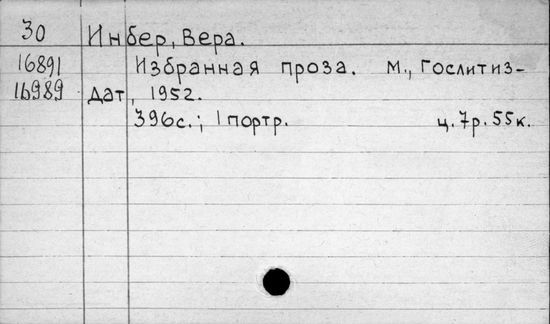 30 Инбер, Вера.
16891 Избранная проза. М., Гослитиз-
16989 дат, 1952.
396с.; 1 портр. ц. 7р. 55к.